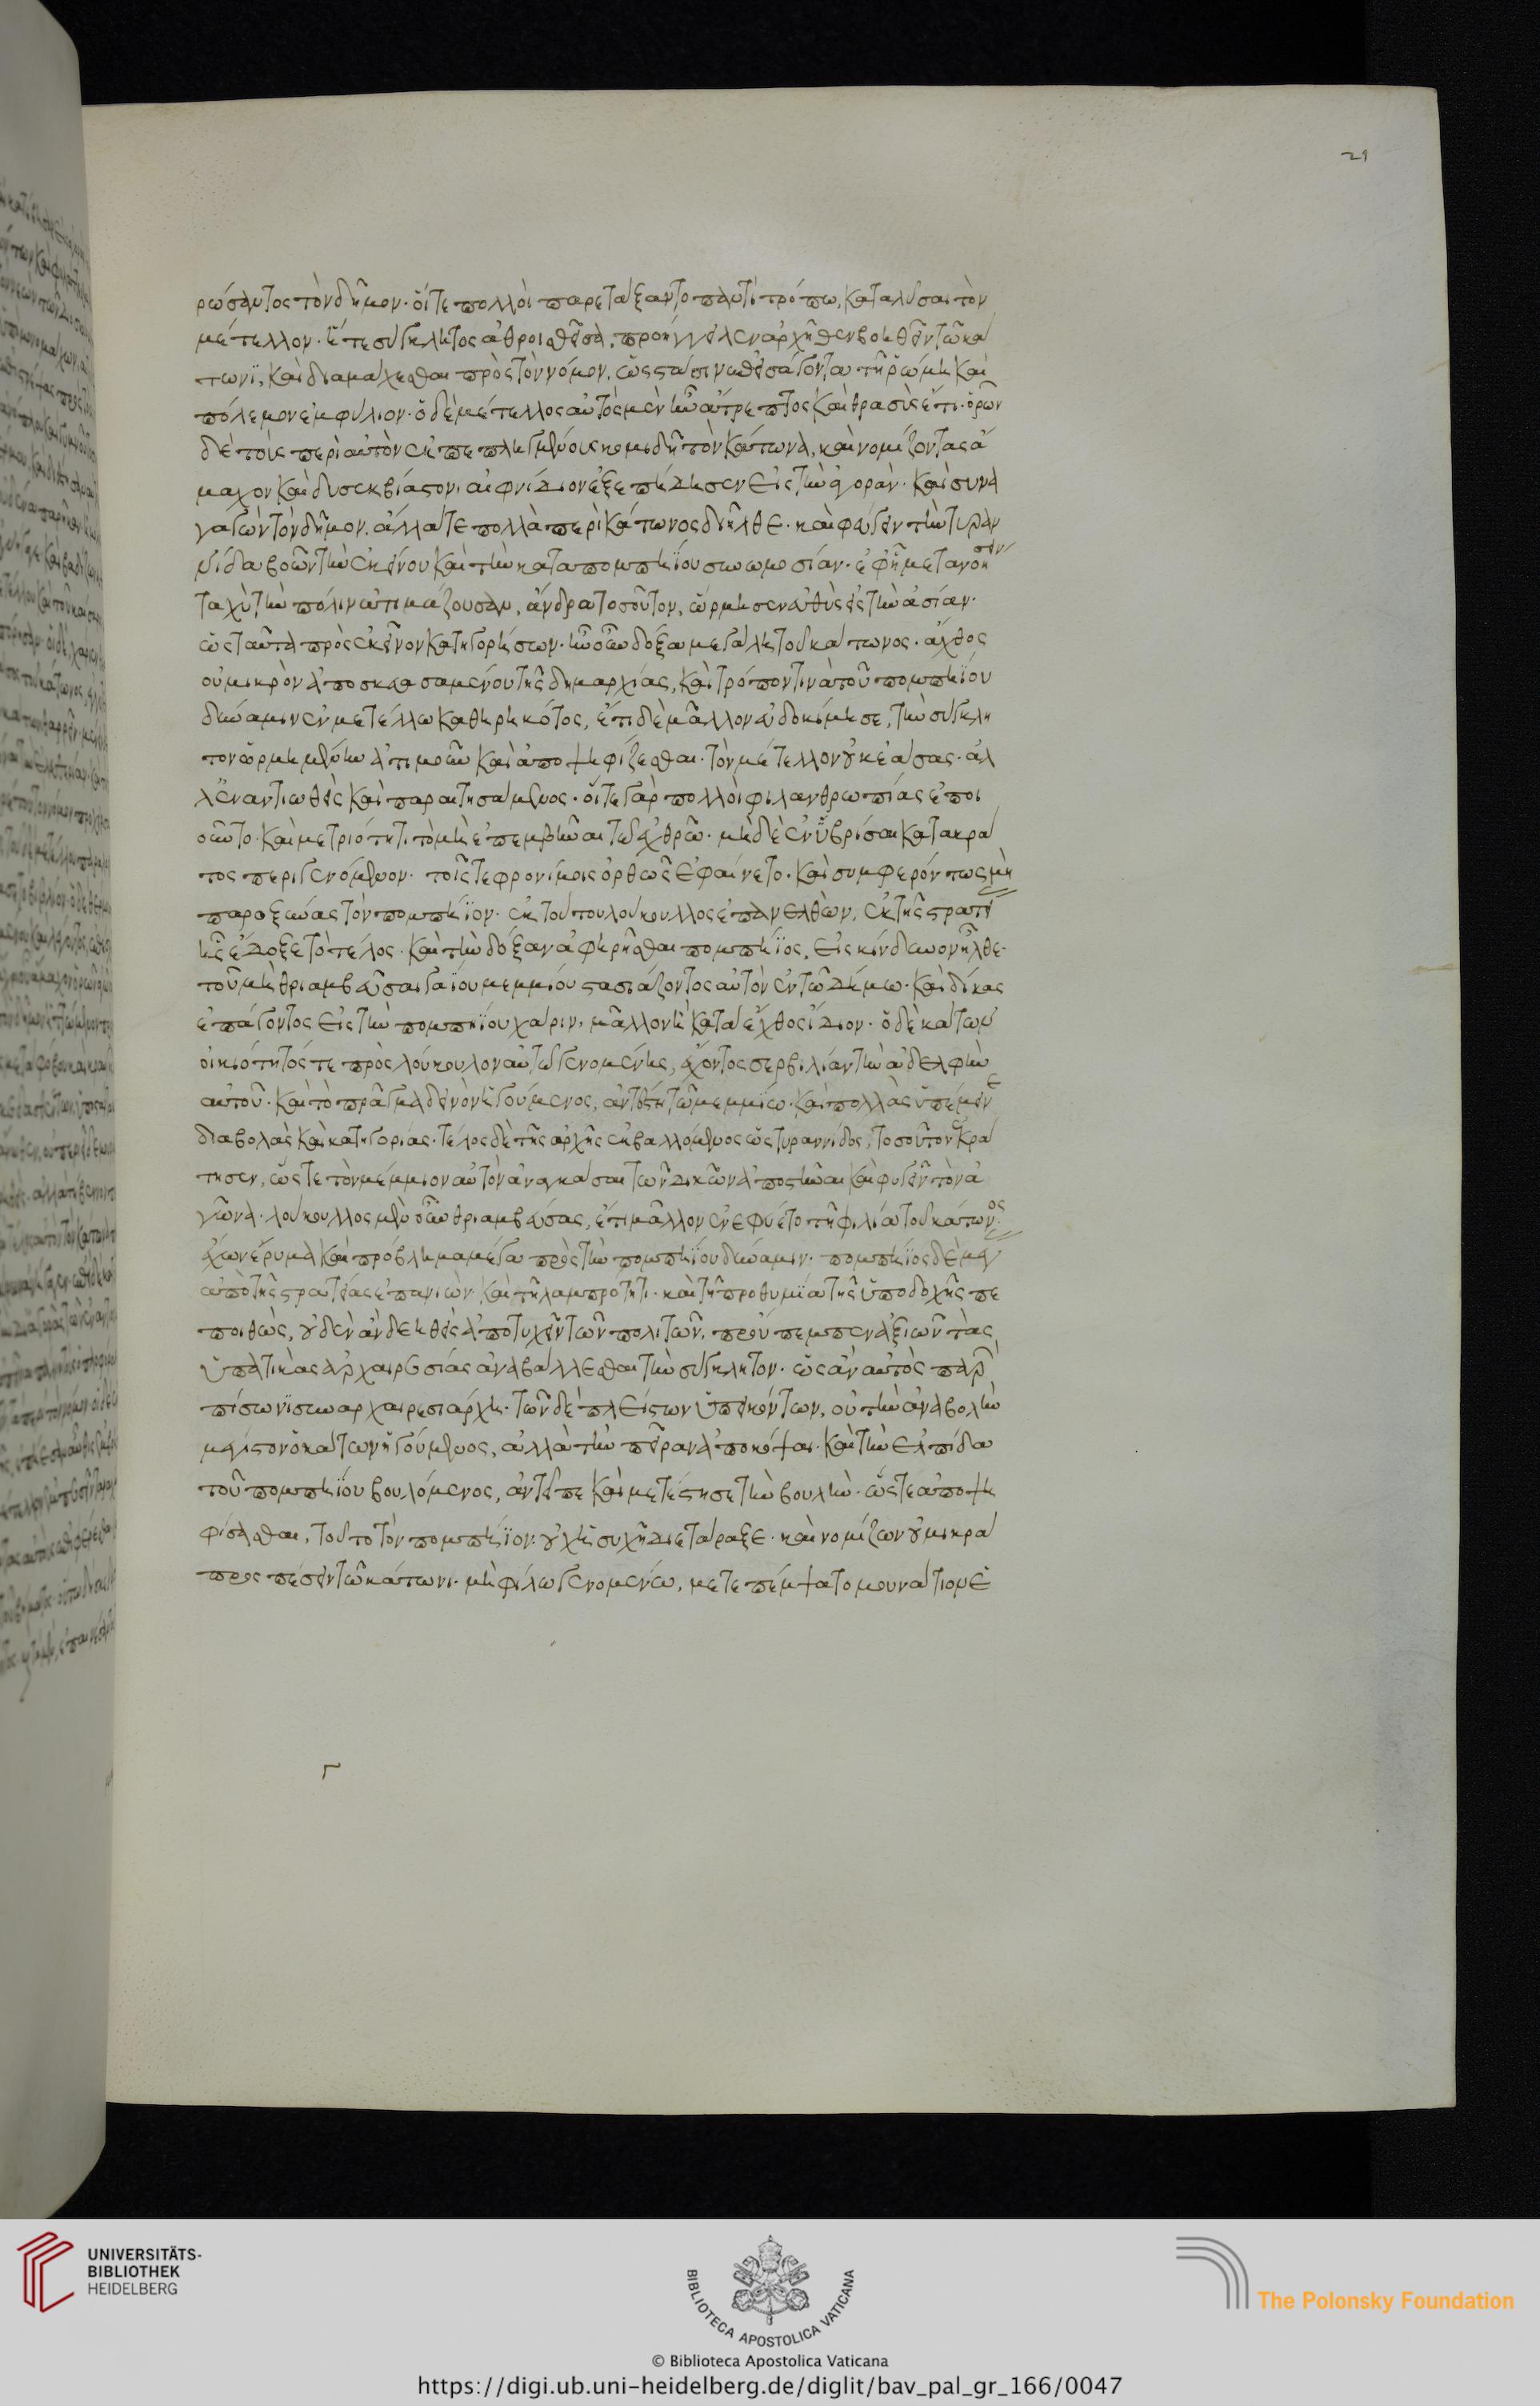 ρώσαντος τὸν δῆμον. οἵ τε πολλοὶ παρετάξαντο παντὶ τρόπω, καταλῦσαι τὸν
μέτελλον. ἥ τε σύγκλητος ἀθροισθεῖσα, προήγγειλεν ἀρχῆθεν βοηθεῖν τῶ κά
τωνϊ, καὶ διαμάχεσθαι πρὸς τὸν νόμον, ὡς στάσιν ἐπεισάγοντα τῆ ῥώμη καὶ
πόλεμον ἐμφύλιον. ὁ δὲ μέτελλος αὐτὸς μὲν ἦν ἄτρεπτος καὶ θρασὺς ἔτι. ὁρῶν
δὲ τοὺς περὶ αὐτὸν ἐκπεπληγμένους κομιδῆ τὸν κάτωνα, καὶ νομίζοντας ἄ
μαχον καὶ δυσεκβίαστον, αἰφνίδιον ἐξεπήδησεν εἰς τὴν ἀγοράν. καὶ συνα
γαγὼν τὸν δῆμον. ἄλλα τε πολλὰ περὶ κάτωνος διῆλθε. καὶ φεύγειν τὴν τυραν
νίδα βοῶν τὴν ἐκείνου καὶ τὴν κατὰ πομπηΐου συνωμοσίαν. ἐφ' ἧ μετανοήσειν
ταχὺ τὴν πόλιν ἀτιμάζουσαν, ἄνδρα τοσοῦτον, ὥρμησεν εὐθὺς εἰς τὴν ἀσίαν.
ὡς ταῦτα πρὸς ἐκεῖνον κατηγορήσων. ἦν οὖν δόξα μεγάλη τοῦ κάτωνος. ἄχθος
οὐ μικρὸν ἀποσκευασαμένου τῆς δημαρχίας, καὶ τρόπον τινὰ τοῦ πομπηΐου
δύναμιν ἐν μετέλλω καθηρηκότος, ἔτι δὲ μᾶλλον εὐδοκίμησε, τὴν σύγκλη
τον ὡρμημένην ἀτιμοῦν καὶ ἀποψηφίζεσθαι. τὸν μέτελλον οὐκ ἐάσας. ἀλ
λ' ἐναντιωθεὶς καὶ παραιτησάμενος. οἵ τε γὰρ πολλοὶ φιλανθρωπίας ἐποι
οῦντο. καὶ μετριότητι. τὸ μὴ ἐπεμβῆναι τῶ ἐχθρῶ. μὴ δὲ ἐνὑβρίσαι κατακρά
τος περιγενόμενον. τοῖς τε φρονίμοις ὀρθῶς ἐφαίνετο. καὶ συμφερόντως μὴ
παροξύνας τὸν πομπήϊον. ἐκ τούτου λούκουλλος ἐπανελθών, ἐκ τῆς στρατεί
ἧς ἔδοξε τὸ τέλος. καὶ τὴν δόξαν ἀφηρῆσθαι πομπήϊος, εἰς κίνδυνον ἦλθε.
τοῦ μὴ θριαμβεῦσαι γαΐου μεμμίου στασιάζοντος αὐτὸν ἐν τῶ δήμω. καὶ δίκας
ἐπάγοντος εἰς τὴν πομπηΐου χάριν, μᾶλλον ἢ κατὰ ἔχθος ἴδιον. ὁ δὲ κάτων
οἰκιότητός τε πρὸς λούκουλον αὐτῶ γενομένης, ἔχοντος σερβιλίαν τὴν ἀδελφὴν
αὐτοῦ. καὶ τὸ πρᾶγμα δεινὸν ἡγούμενος, ἀντέστη τῶ μεμμίω. καὶ πολλὰς ὑπέμεινε
διαβολὰς καὶ κατηγορίας. τέλος δὲ τῆς ἀρχῆς ἐκβαλλόμενος ὡς τυραννίδος, τοσοῦτον ἐκρά
τησεν, ὥς τε τὸν μέμμιον αὐτὸν ἀναγκάσαι τῶν δικῶν ἀποστῆναι καὶ φυγεῖν τὸν ἀ
γῶνα. λούκουλλος μὲν οὖν θριαμβεύσας, ἔτι μᾶλλον ἐνεφύετο τῆ φιλία τοῦ κάτωνος.
ἔχων ἔρυμα καὶ πρόβλημα μέγα πρὸς τὴν πομπηΐου δύναμιν. πομπήϊος δὲ μέγ
ἀπὸ τῆς στρατείας ἐπανιὼν καὶ τῆ λαμπρότητι. καὶ τῆ προθυμία τῆς ὑποδοχῆς πε
ποιθώς, οὐδὲν ἂν δεηθεὶς ἀποτυχεῖν τῶν πολιτῶν, προὔπεμπεν ἀξιῶν τὰς
ὑπατικὰς ἀρχαιρεσίας ἀναβαλλέσθαι τὴν σύγκλητον. ὡς ἂν αὐτὸς παρ
πίσωνϊ συναρχαιρεσιάρχη. τῶν δὲ πλείστων ὑπεικόντων, οὐ τὴν ἀναβολὴν
μέγιστον ὁ κάτων ἡγούμενος, ἀλλὰ τὴν πεῖραν ἀποκόψαι. καὶ τὴν ἐλπίδα
τοῦ πομπηΐου βουλόμενος, ἀντεῖπε καὶ μετέστησε τὴν βουλήν. ὥς τε ἀποψη
φίσασθαι, τοῦτο τὸν πομπήϊον. οὐχ ἡσυχῆ διετάραξε. καὶ νομίζων οὐ μικρὰ
προςπέσειν τῶ κάτωνι. μὴ φίλω γενομένω, μετεπέμψατο μουνάτιον ἑ
21
UNIVERSITÄTS-
BIBLIOTHEK
HEIDELBERG
BIBLIOTECA APOSTOLICA VATICANA
The Polonsky Foundation
© Biblioteca Apostolica Vaticana
https://digi.ub.uni-heidelberg.de/diglit/bav_pal_gr_166/0047